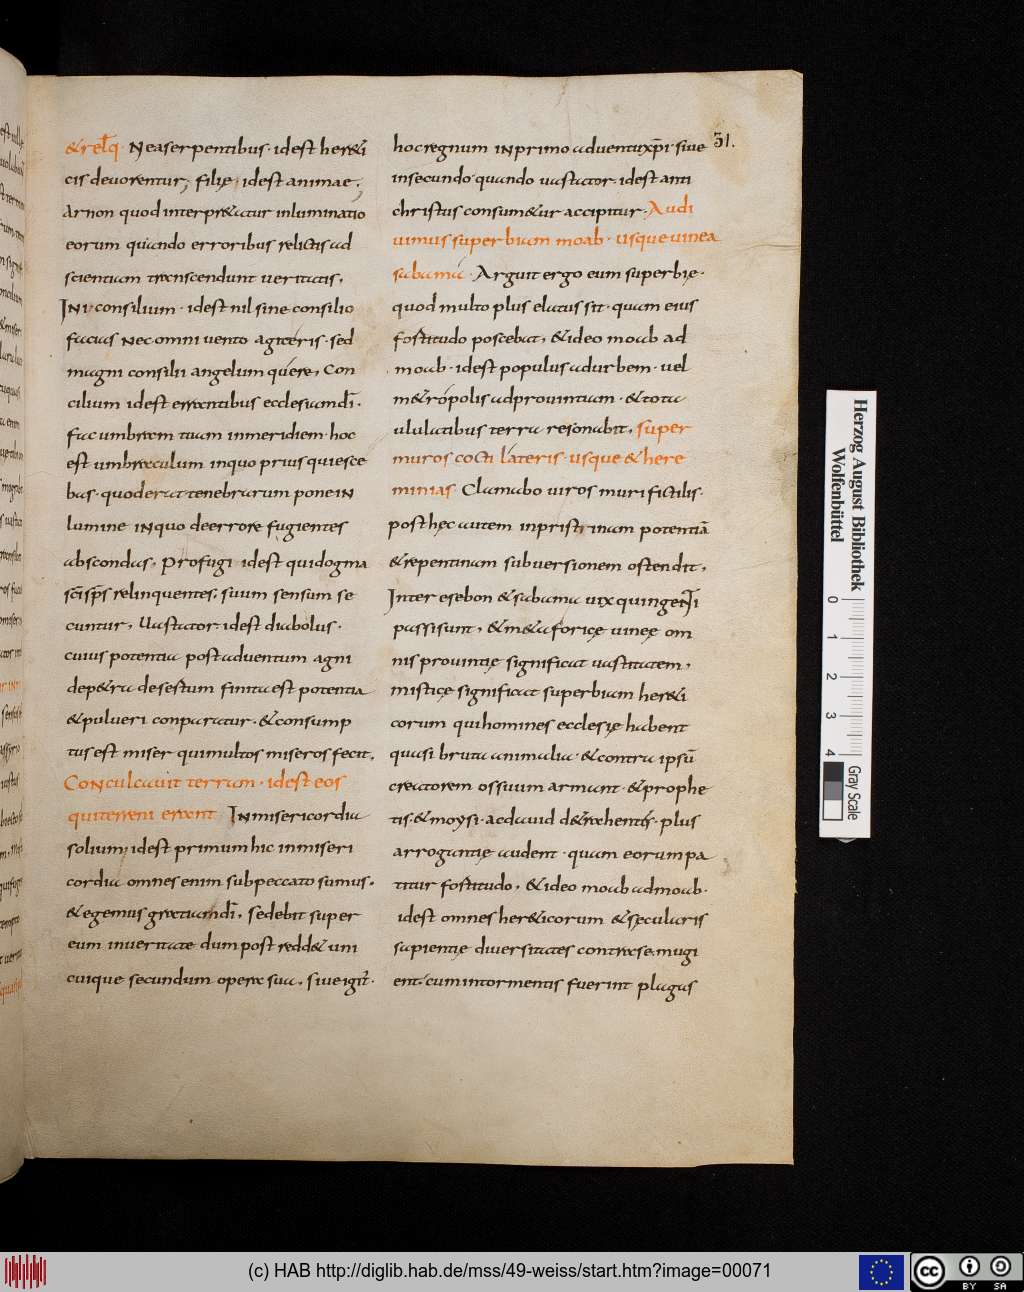 &relq̄· Ne aserpentibus· idest her&i
cis deuorentur; filię idest animae;
Arnon quod interpr&atur inluminatio
eorum quando erroribus relictis ad
scientiam transcendunt ueritatis,
Ini consilium· idest nil sine consilio
facias nec omni uento agiteris· sed
magni consilii angelum quere, Con
cilium idest errantibus ecclesiam dī·
fac umbram tuam inmeridiem· hoc
est umbraculum inquo prius quiesce
bas· quod erat tenebrarum pone in
lumine inquo deerrore fugientes
abscondas, Profugi idest qui dogma
scīsps̄ relinquentes, suum sensum se
cuntur, Uastator idest diabolus·
cuius potentia post aduentum agni
dep&ra desestum finita est potentia
&pulueri conparatur· &consump
tus est miser qui multos miseros fecit,
Conculcauit terram· idest eos
qui terreni erant Inmisericordia
solium, idest primum hic inmiseri
cordia omnes enim sub peccato sumus,
&egemus gratiam dī, Sedebit super
eum inueritate dum post redd& uni
cuique secundum opera sua, siue igit̄·
31.
hoc regnum inprimo aduentu xp̄i· siue
insecundo quando uastator· idest anti
christus consum&ur accipitur· Audi
uimus superbiam moab· usque uinea
sabama· Arguit ergo eum superbię·
quod multo plus elatus sit· quam eius
fostitudo poscebat, &ideo moab ad
moab· idest populus adurbem· uel
m&ropolis adprouintiam· &tota
ululatibus terra resonabit, super
muros cocti lateris· usque &here
minias· Clamabo uiros muri fictilis·
post hęc autem inpristinam potentiā
&repentinam subuersionem ostendit,
Inter esebon &sabama uix quingenti
passi sunt, &m&aforicę uineę om
nis prouintię significat uastitatem,
misticę significat superbiam her&i
corum qui homines ecclesię habent
quasi bruta animalia· &contra ipsū
creatorem ossuum armant· &prophe
tis· &moysi· ac dauid d&rahentes· plus
arrogantię audent· quam eorum pa
titur fostitudo, &ideo moab admoab·
idest omnes her&icorum &sęcularis
sapientię diuersitates contra se mugi
ent· cum intormentis fuerint plagas
Herzog August Bibliothek
Wolfenbüttel
0 1 2 3 4
Gray Scale
(c) HAB http://diglib.hab.de/mss/49-weiss/start.htm?image=00071
cc BY SA